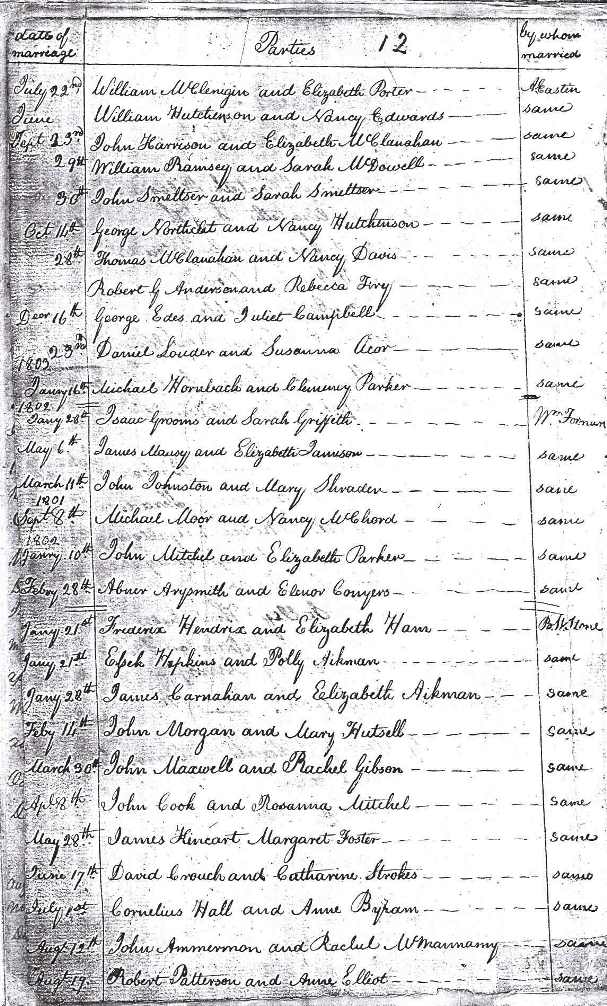 date of marriage Parties 12 by whom married
July 22nd William McClenigin and Elizabeth Porter A Eastin
June William Hutchenson and Nancy Edwards same
Sept 23rd John Harrison and Elizabeth McClanahan same
29th William Ramsey and Sarah McDowell same
30th John Smeltser and Sarah Smeltser same
Oct 14th George Northcut and Nancy Hutchenson same
28th Thomas McClanahan and Nancy Davis same
Robert G Anderson and Rebecca same
Decr 16th George Edes and Juliet Campbell same
23rd Daniel Louder and Susanna Acor same
1803
Janry 16th Michael Hornback and Clemency Parker same
1802
Jany 28th Isaac Grooms and Sarah Griffith Wm Forman
May 6th James Mausy and Elizabeth Jamison same
March 11th John Johnston and Mary Shrader same
1801
Sept 8th Michael Moor and Nancy McChord same
1802
Janry 10th John Mitchel and Elizabeth Parker same
Febry 28th Abner Arysmith and Elenor Conyers same
Jany 21st Frederix Hendrix and Elizabeth Ham B.W. Stone
Jany 21st Essek Hopkins and Polly Aikman same
Jany 28th James Carnahan and Eelizabeth Aikman same
Feby 14th John Morgan and Mary Hutsell same
March 30th John Maxwell and Rachel Gibson same
Apl 8th John Cook and Rosanna Mitchel same
May 28th James Kincart Margaret Foster same
June 17th David Crouch and Catharine Strokes same
July 1st Cornelius Hall and Anne Byram same
Augt 12th John Ammermon and Rachel McMannamy same
Augt 17 Robert Patterson and Anne Elliot same